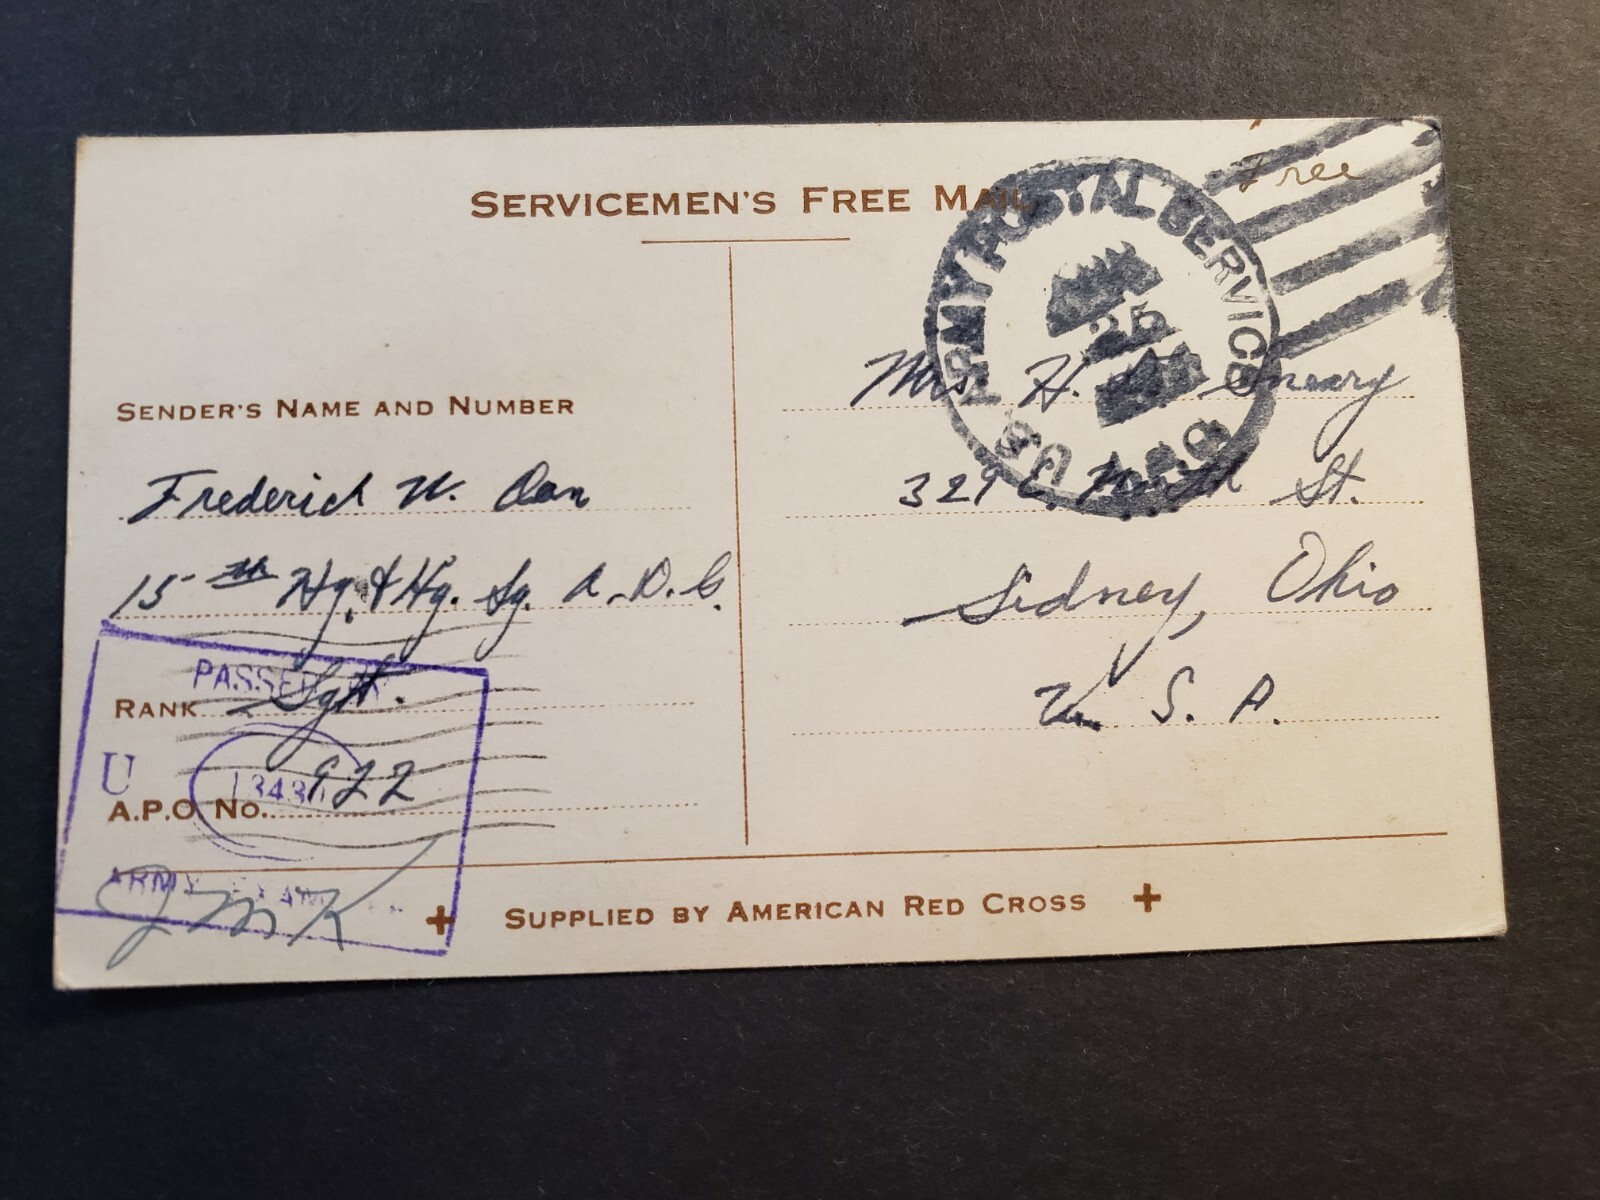 Free
SERVICEMEN'S FREE MAIL
ARMY POSTAL SERVICE
25
U.S.
APO
SENDER'S NAME AND NUMBER
Frederich W.
15th Hq. & Hq. Sq. A.D.G.
PASSED BY
RANK Sgt.
U
A.P.O. No. 922
ARMY EXAM
JMK
Mrs. H.
329 E. North St.
Sidney, Ohio
U.S.A.
+ SUPPLIED BY AMERICAN RED CROSS +